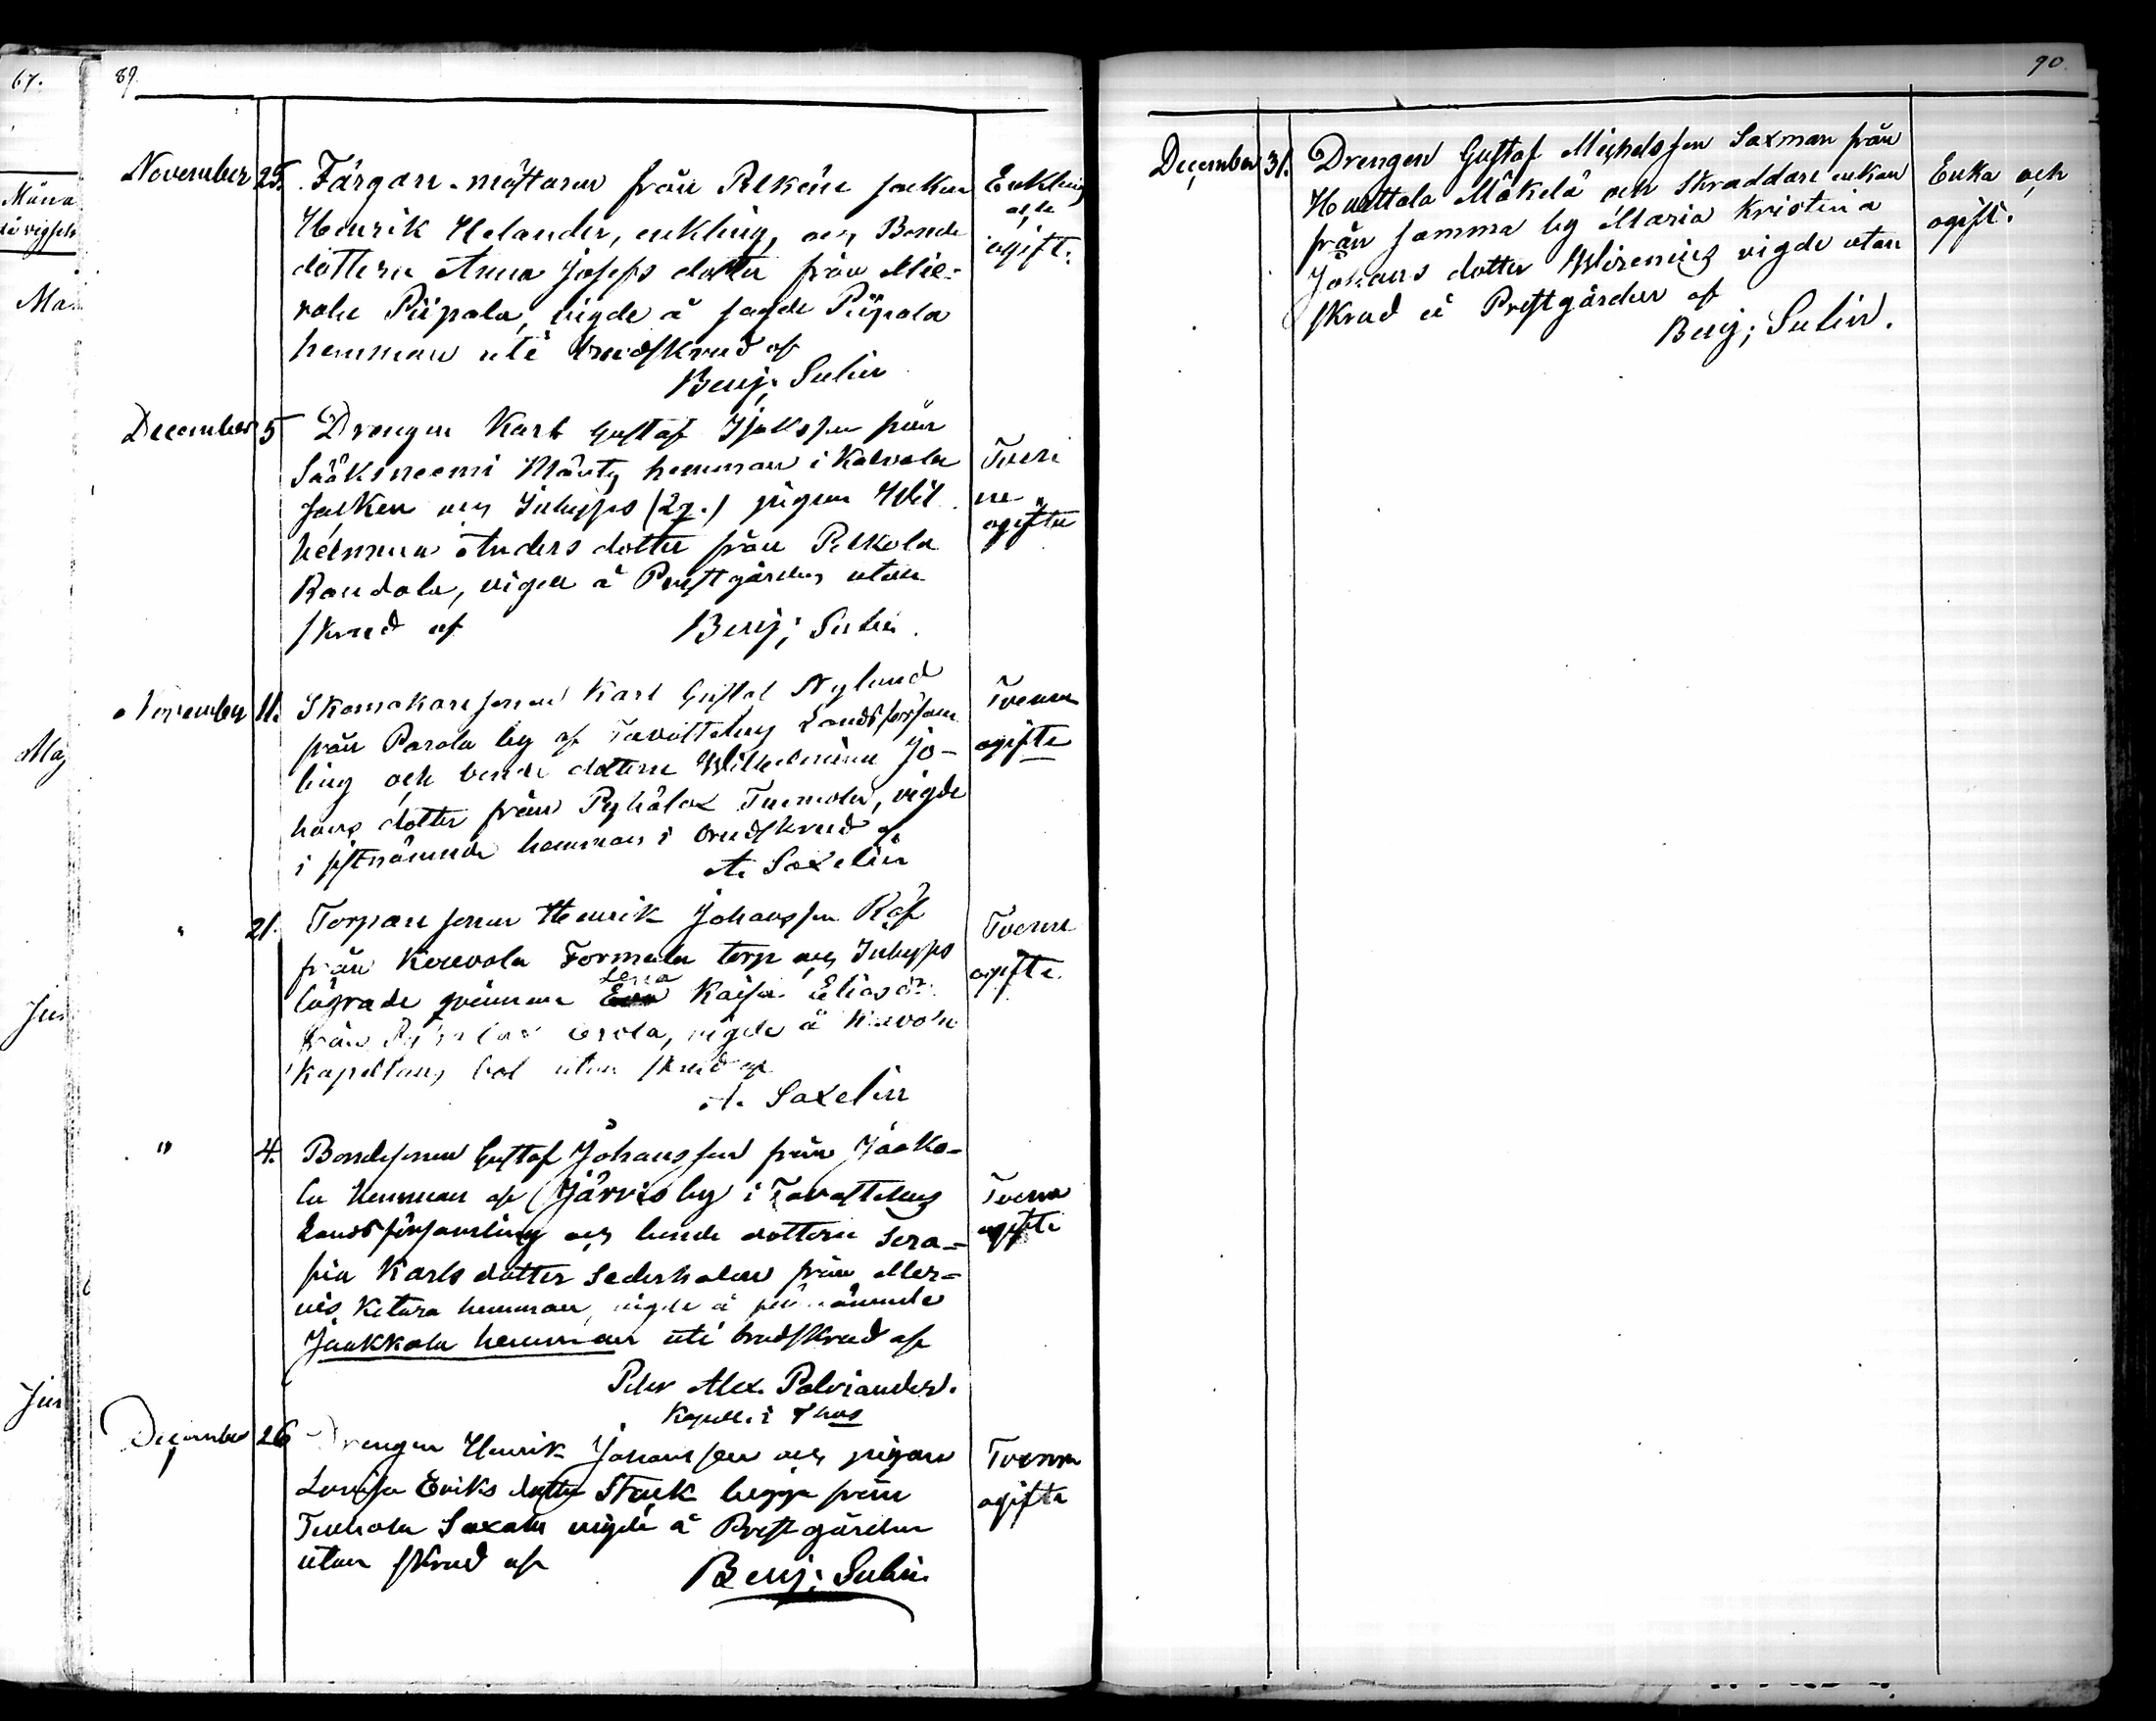 67.
89.
November 25. Färgare-mästaren från Pelkäne socken
Henrik Helander, enkling, och Bonde
dottern Anna Josefs dotter från Mie-
rola Piipala, vigde å sagde Piipala
hemman uti brudskrud af
Benj; Sulin
Enkling
och
ogift.
December 5 Drengen Karl Gustaf Isaksson från
Sääksneemi Mänty hemman i Kalvola
socken och Inhyses (2g.) pigan Wil
helmina Anders dotter från Pelkola
Randala, vigde å Prestgården utan
skrud af Benj; Sulin.
Tven
ne
ogifte
November 11. Skomakare sonen Karl Gustaf Nylund
från Parola by af Tavastehus Landsförsam
ling och bonde dottern Wilhelmina Jo-
hans dotter från Pyhälax Tuomola, vigde
i sistnämnde hemman i brudskrud af
A. Saxelin
Tvenne
ogifte
" 21. Torpare sonen Henrik Johansson Räf
från Formula torp och Inhyses
Lena
Eva Kaisa Elias dr
från vigde å
Kapellans bol utan skrud af
A. Saxelin
Tvenne
ogifte.
" 4. Bondesonen Gustaf Johansson från Jaako-
la hemman af Järvis by i Tavastehus
Landsförsamling och bonde dottern Sera-
fia Karls dotter Sederholm från Mer-
vis Ketara hemman, vigde å
Jaakkola hemman uti brudskrud af
Peter Alex. Palviander.
Kapell. i Thus
Tvenne
ogifte
December 26 Drengen Henrik Johansson och pigan
Lovisa Eriks dotter Stark begge från
Saxala vigde å Prestgården
utan skrud af Benj; Sulin.
Tvenne
ogifte
90.
December 31. Drengen Gustaf Michelsson Saxman från
Huattala Mäkelä och Skraddare enkan
från samma by Maria Kristina
Johans dotter Wirenius vigde utan
skrud å Prestgården af
Benj; Sulin.
Enka och
ogift.